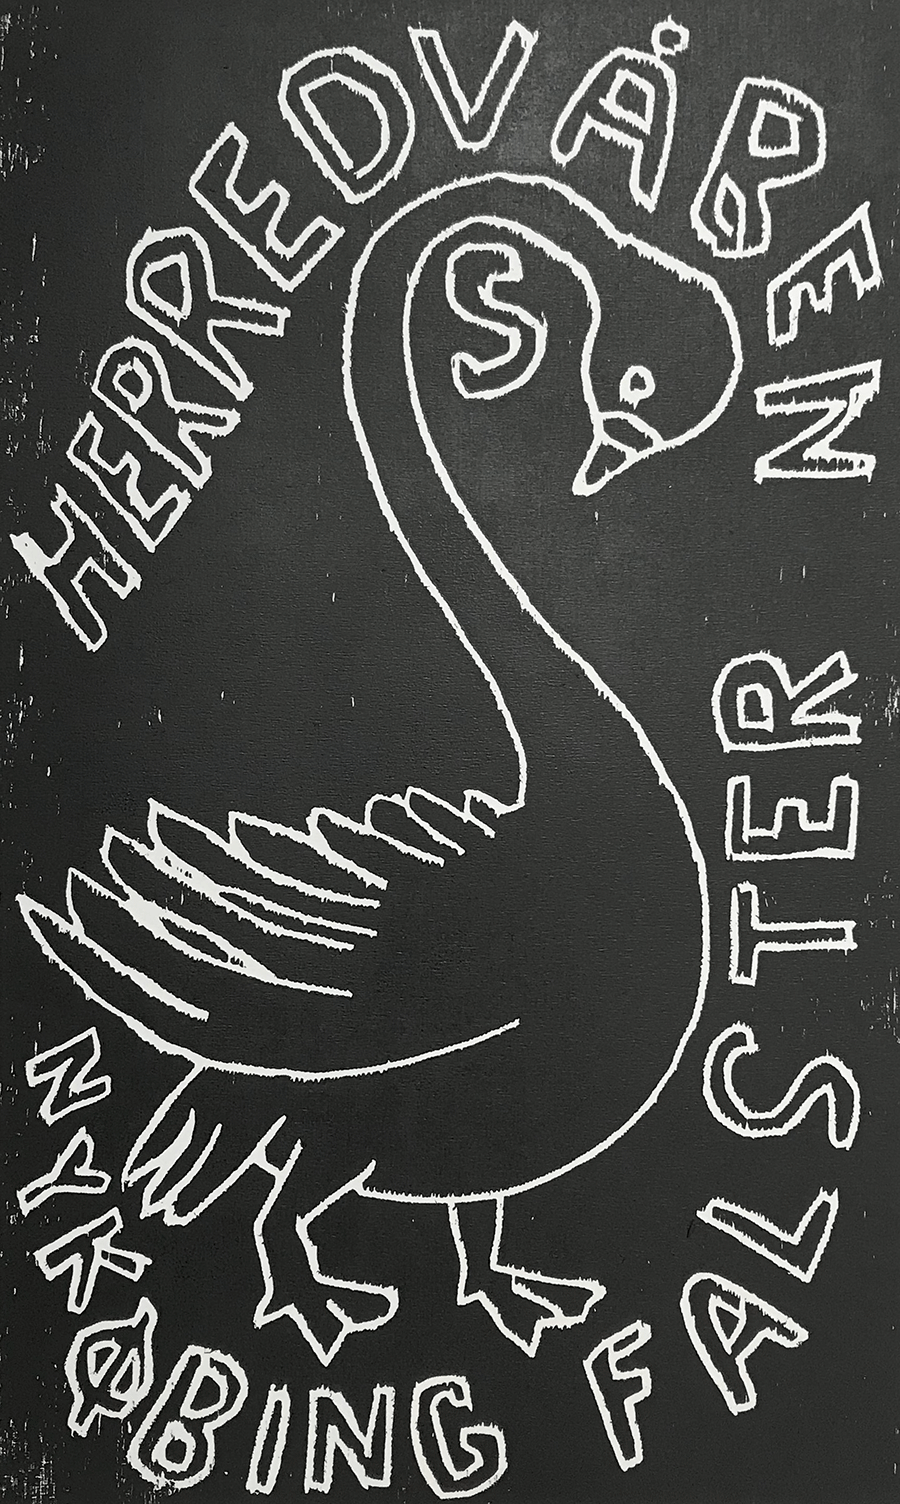 HERREDVÅREN
S
NYKØBING FALSTER